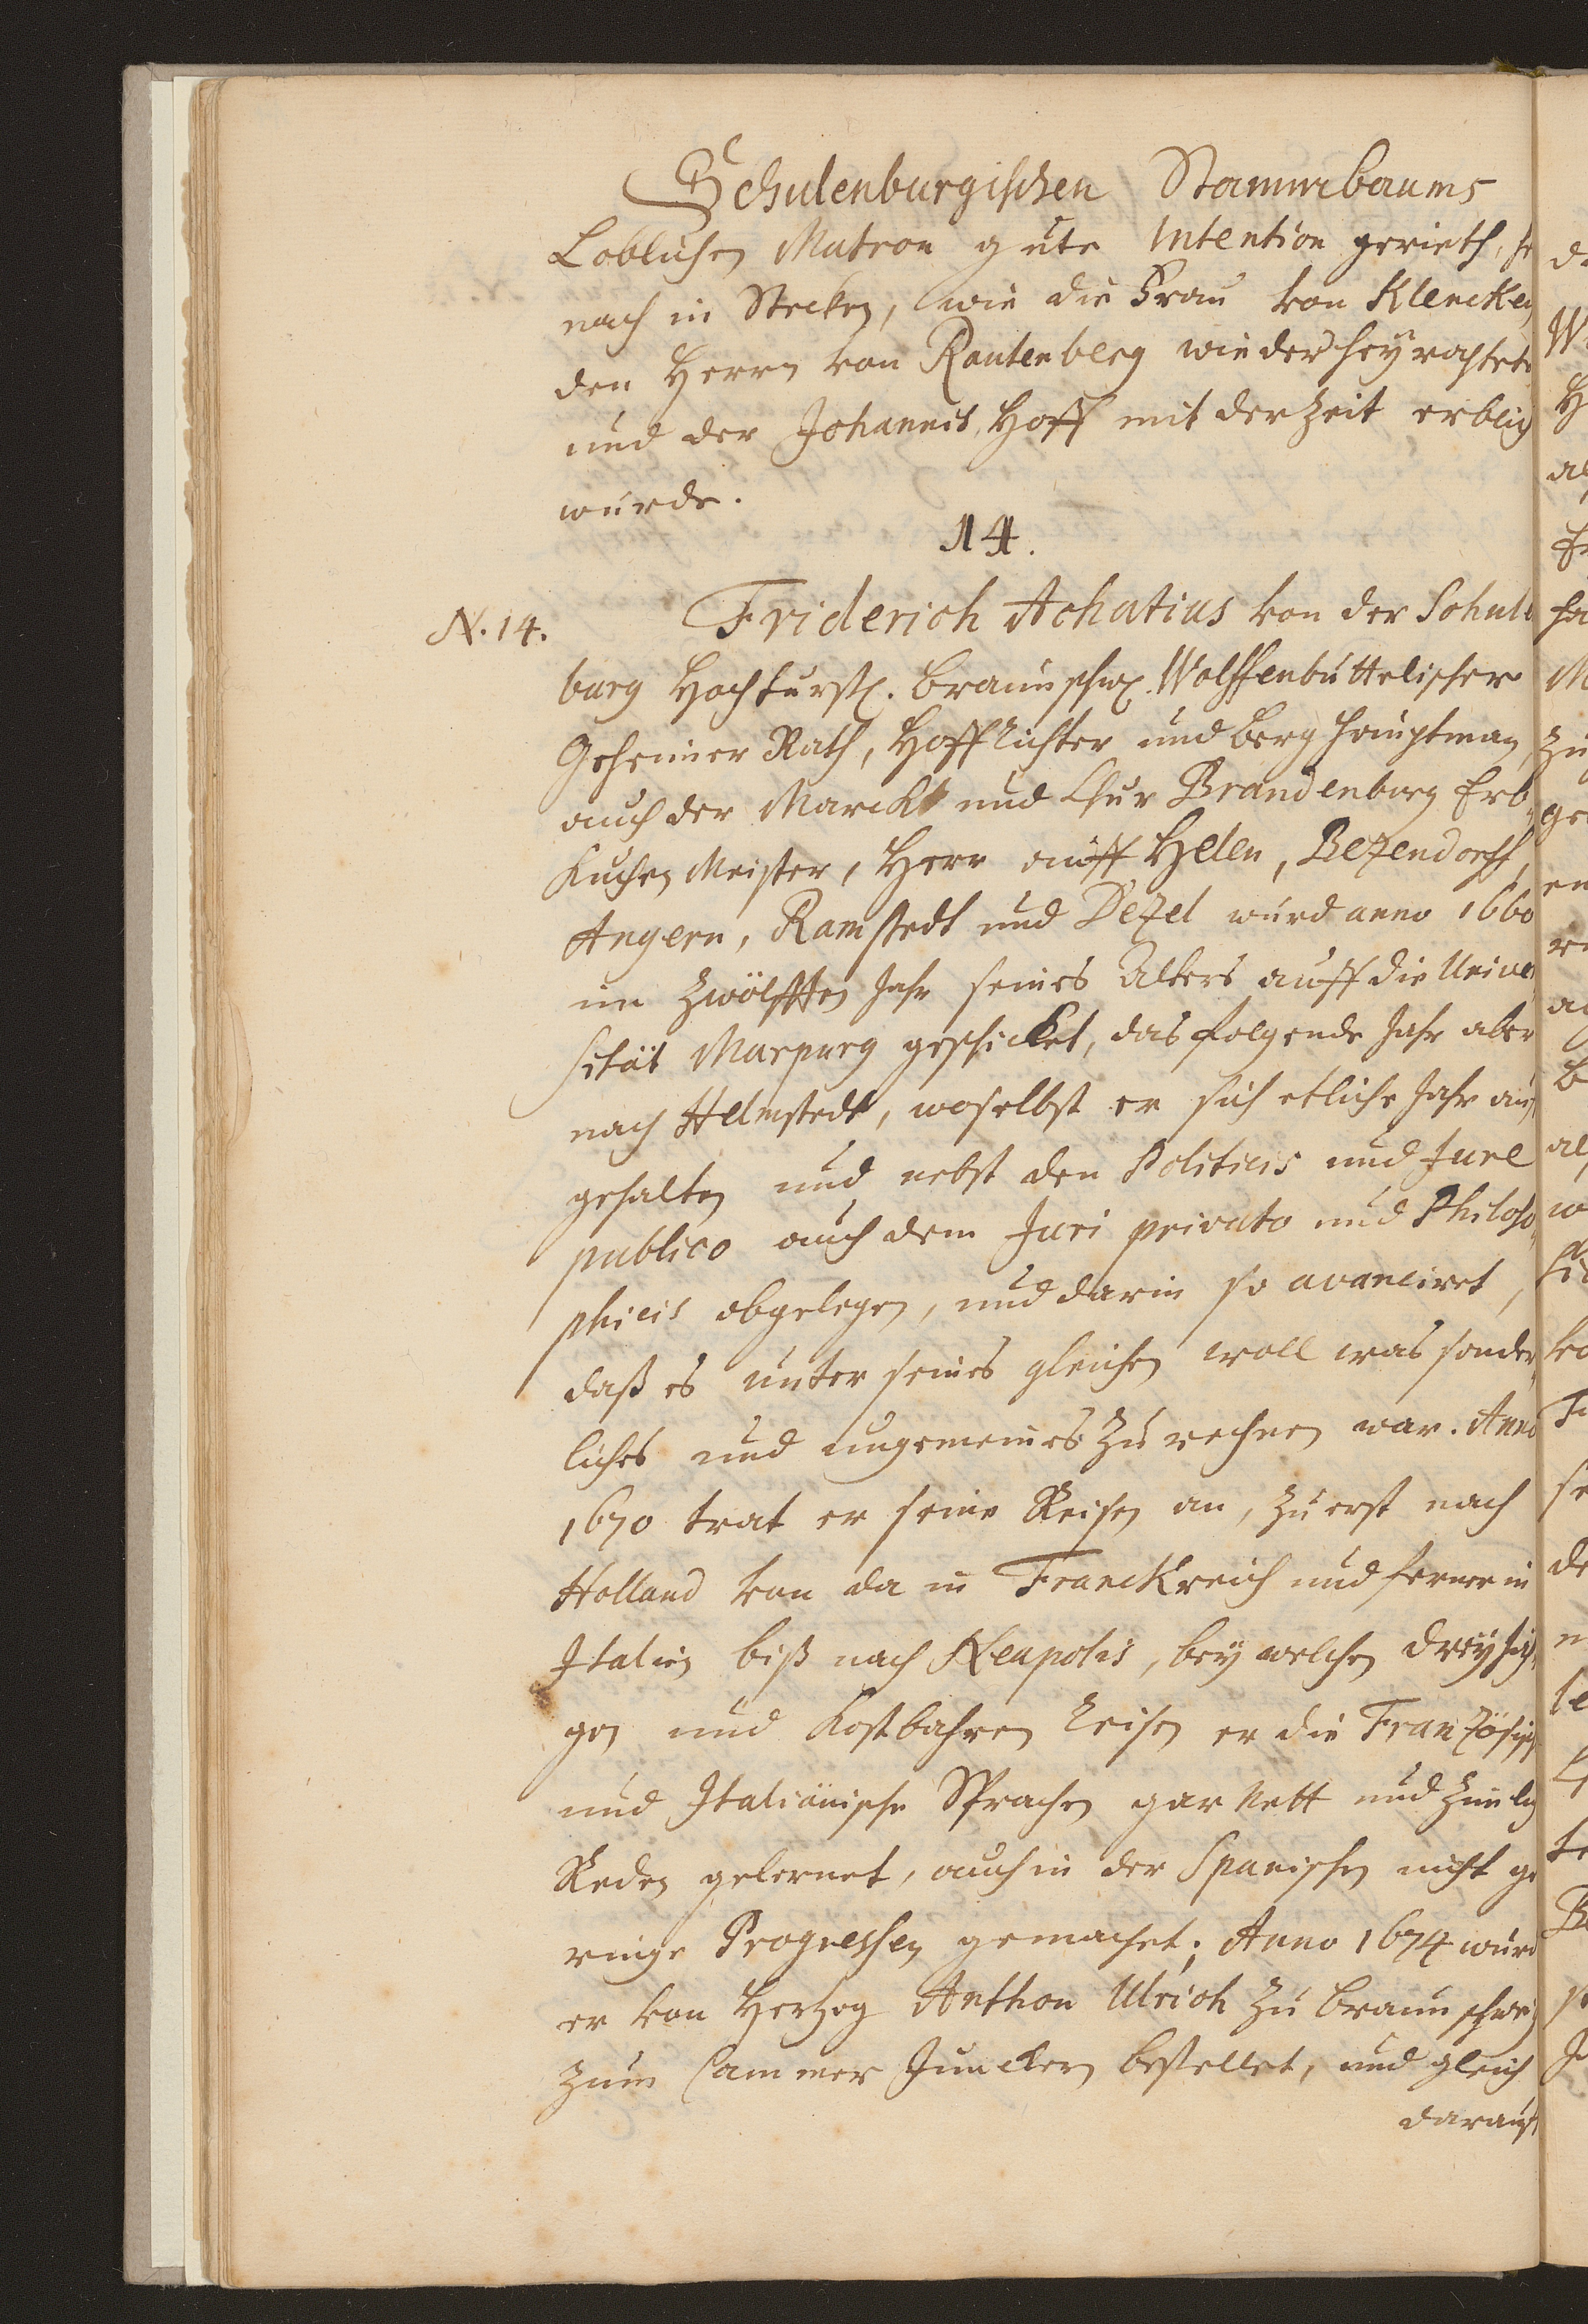 Schulenburgischen Stammbaums
Loblichen Matron gute Intention gerieth, her
nach in Stecken, wie die Frau von Klencken
den Herrn von Rautenberg wieder heyrahtete
und der Johannis Hoff mit der Zeit erblich
wurde.
14.
N. 14.
Friderich Achatius von der Schule
burg Hochfurstl. Braunschw. Wolffenbüttelischer
Geheimer Rath, Hoff Richter und Berg Hauptman,
auch der Marckt und Chur Brandenburg Erb-
Kuchen Meister, Herr auff Helen, Bezendorff,
Angern, Ramstedt und Dezel wurd anno 1660
im Zwölfften Jahr seines Alters auff die Univer
sität Marpurg geschicket, das folgende Jahr aber
nach Helmstedt, woselbst er sich etliche Jahr auf
gehalten und nebst den Politicis und Jure
publico auch dem Juri privato und Philoso-
phicis obgelegen, und darin so avanciret,
daß es unter seines gleichen woll was sonder-
liches und ungemeines zu rechnen war. Anno
1670 trat er seine Reisen an, zu erst nach
Holland von da in Franckreich und ferner in
Italien biß nach Neapolis, bey welchen dreyjäh-
gen und kostbahren Reisen er die Französisch
und Italiänische Sprachen gar nett und zierlich
Reden gelernet, auch in der Spanischen nicht ge
ringe Progressen gemachet; Anno 1674 wurd
er von Hertzog Anthon Ulrich zu Braunschweig
zum Cammer Junckern bestellet, und gleich
darauf